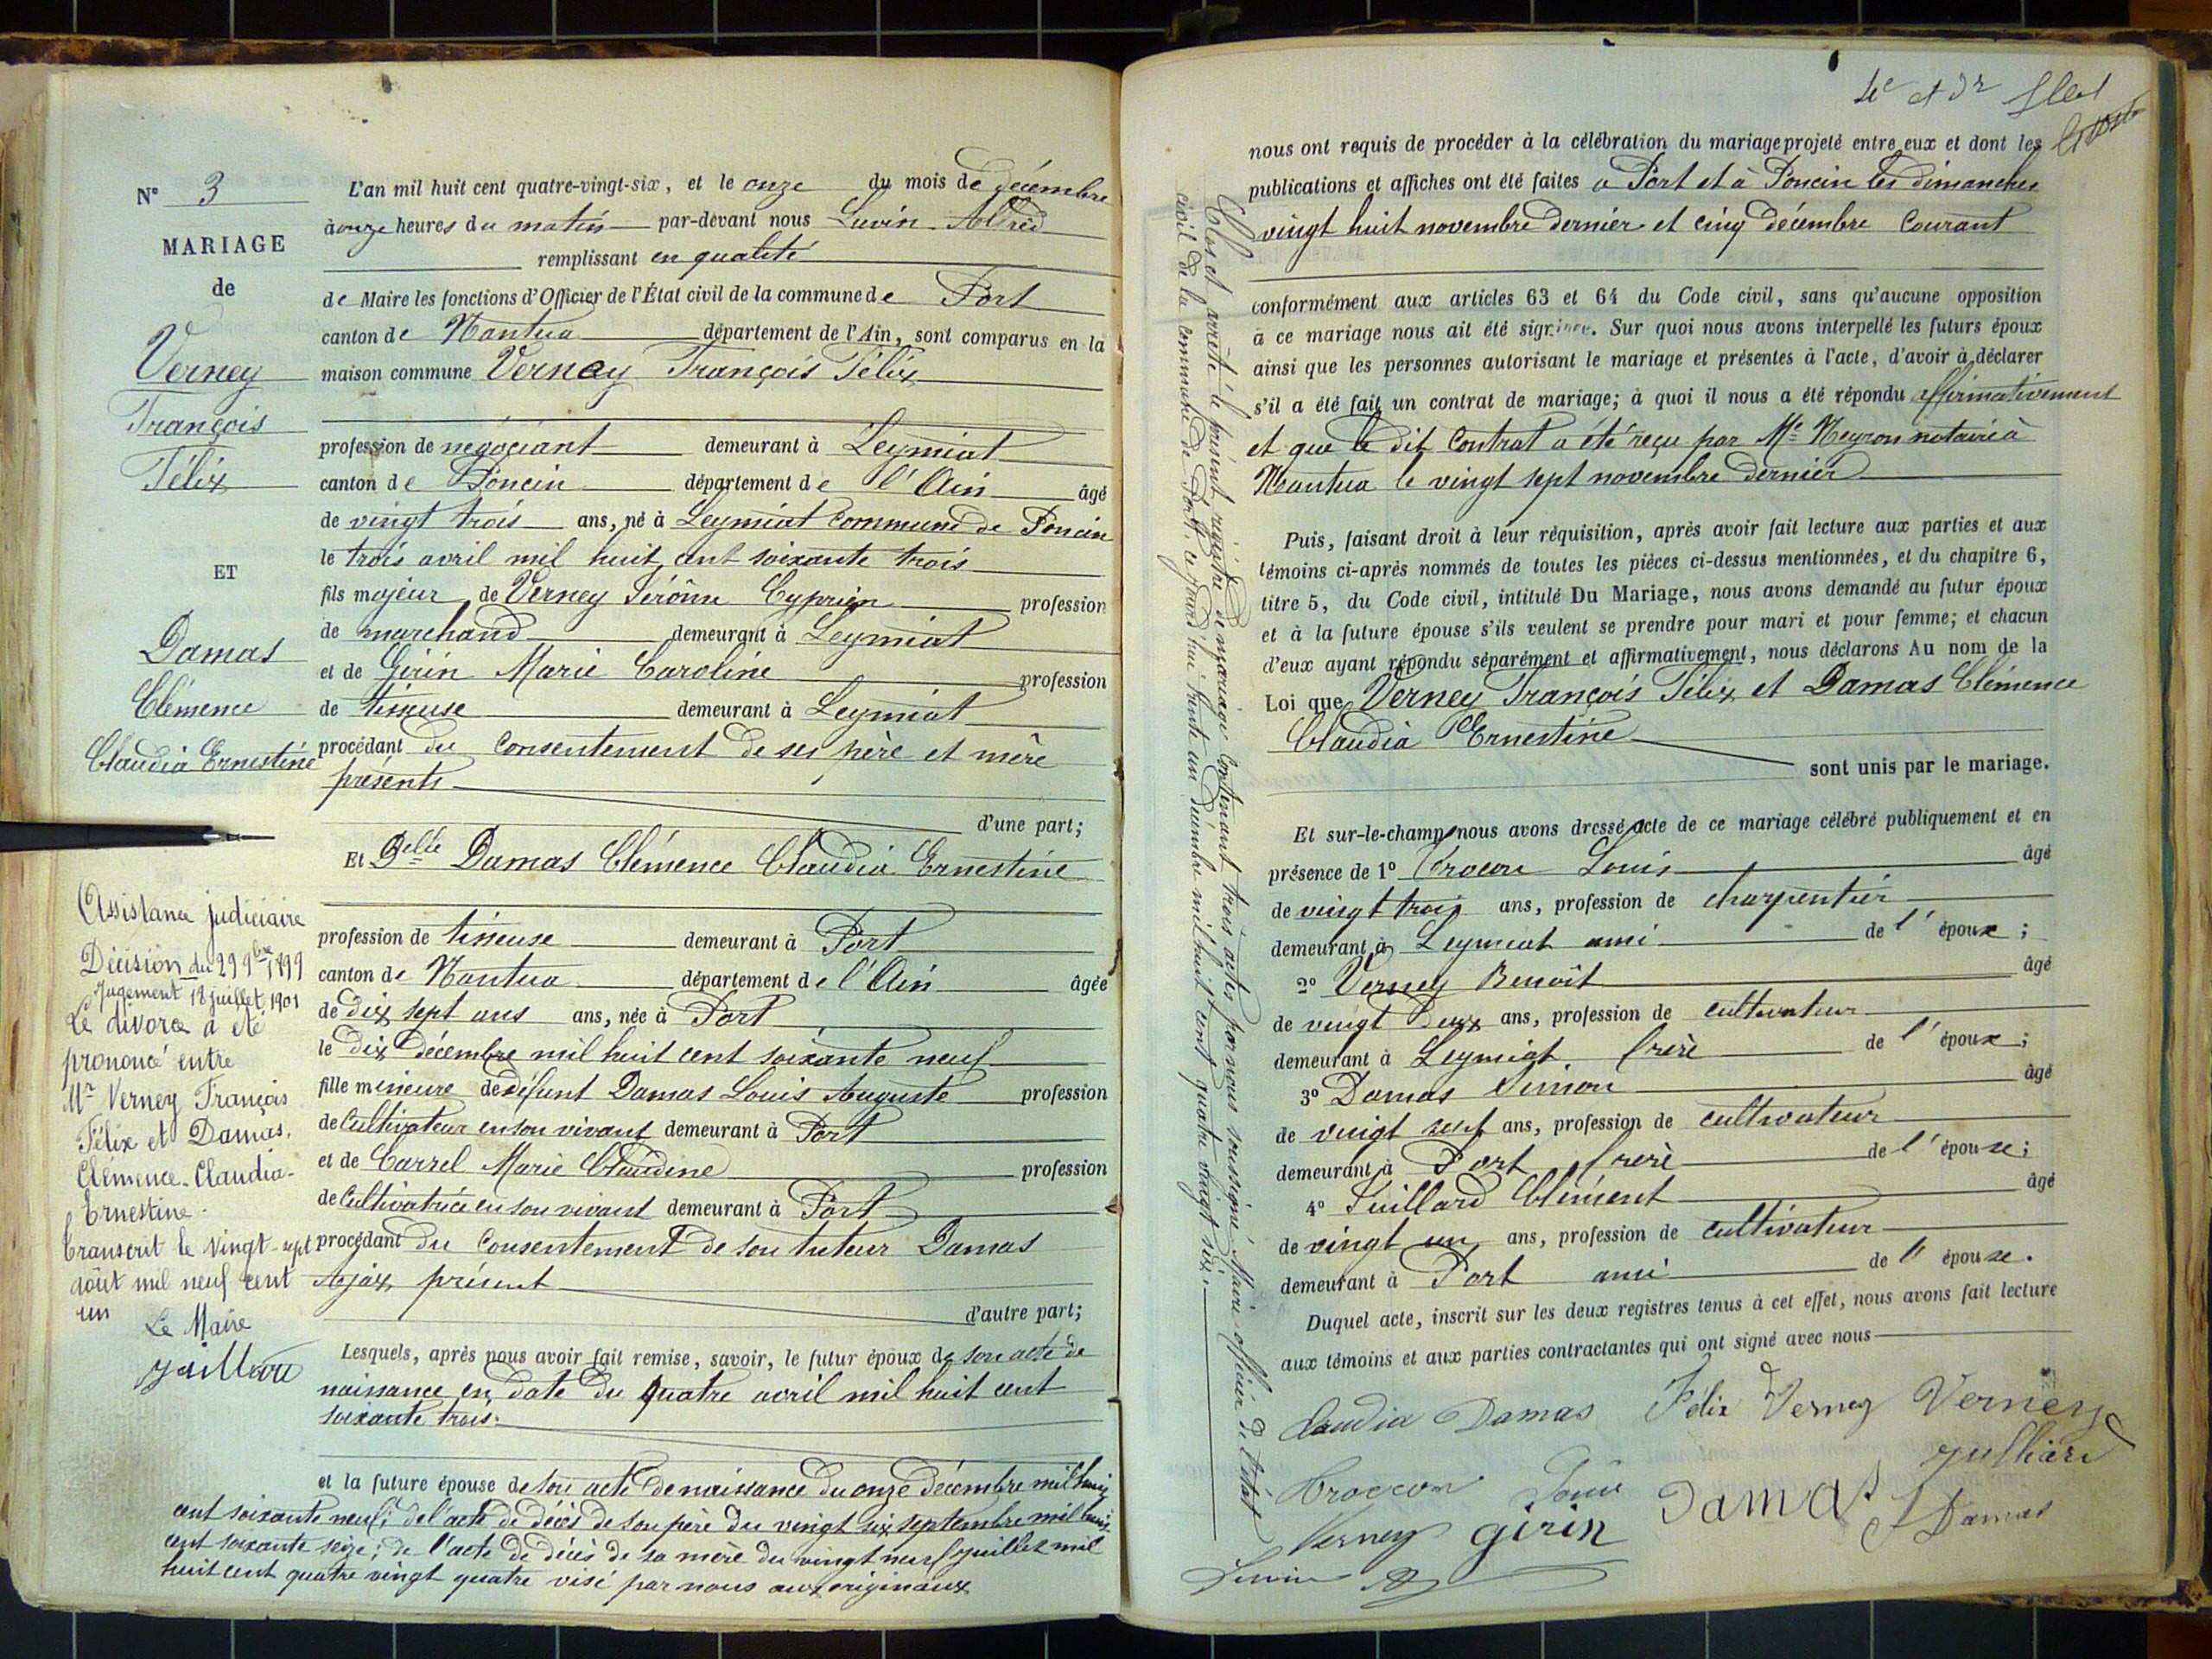 N° 3
MARIAGE
de
Verney
François
Félix
ET
Damas
Clémence
Claudia Ernestine
Assistance judiciaire
Décision du 29 9bre 1899
Jugement 18 juillet 1901
Le divorce a été
prononcé entre
Mr Verney François
Félix et Damas.
Clémence-Claudia-
Ernestine.
Transcrit le vingt-sept
août mil neuf cent
un
Le Maire
L'an mil huit cent quatre-vingt-six, et le onze du mois de décembre
à onze heures du matin par-devant nous Luvin Alfred
remplissant en qualité
de Maire les fonctions d'Officier de l'État civil de la commune de Port
canton de Nantua département de l'Ain, sont comparus en la
maison commune Verney François Félix
profession de négociant demeurant à Leymiat
canton de Poncin département de l'Ain âgé
de vingt trois ans, né à Leymiat commune de Poncin
le trois avril mil huit cent soixante trois
fils majeur de Verney Jérôme Cyprien profession
de marchand demeurant à Leymiat
et de Girin Marie Caroline profession
de tisseuse demeurant à Leymiat
procédant du consentement de ses père et mère
présents
d'une part;
Et Delle Damas Clémence Claudia Ernestine
profession de tisseuse demeurant à Port
canton de Nantua département de l'Ain âgée
de dix sept ans ans, née à Port
le dix décembre mil huit cent soixante neuf
fille mineure de défunt Damas Louis Auguste profession
de cultivateur en son vivant demeurant à Port
et de Carrel Marie Claudine profession
de cultivatrice en son vivant demeurant à Port
procédant du consentement de son tuteur Damas
Ajax présent
d'autre part;
Lesquels, après nous avoir fait remise, savoir, le futur époux de son acte de
naissance en date du quatre avril mil huit cent
soixante trois.
et la future épouse de son acte de naissance du onze décembre mil huit
cent soixante neuf; de l'acte de décès de son père du vingt six septembre mil huit
cent soixante seize; de l'acte de décès de sa mère du vingt neuf juillet mil
huit cent quatre vingt quatre visé par nous aux originaux
nous ont requis de procéder à la célébration du mariage projeté entre eux et dont les
publications et affiches ont été faites à Port et à Poncin les dimanches
vingt huit novembre dernier et cinq décembre courant
conformément aux articles 63 et 64 du Code civil, sans qu'aucune opposition
à ce mariage nous ait été signifiée. Sur quoi nous avons interpellé les futurs époux
ainsi que les personnes autorisant le mariage et présentes à l'acte, d'avoir à déclarer
s'il a été fait un contrat de mariage; à quoi il nous a été répondu affirmativement
et que le dit contrat a été reçu par Me Neyron notaire à
Nantua le vingt sept novembre dernier
Puis, faisant droit à leur réquisition, après avoir fait lecture aux parties et aux
témoins ci-après nommés de toutes les pièces ci-dessus mentionnées, et du chapitre 6,
titre 5, du Code civil, intitulé Du Mariage, nous avons demandé au futur époux
et à la future épouse s'ils veulent se prendre pour mari et pour femme; et chacun
d'eux ayant répondu séparément et affirmativement, nous déclarons Au nom de la
Loi que Verney François Félix et Damas Clémence
Claudia Ernestine
sont unis par le mariage.
Et sur-le-champ nous avons dressé acte de ce mariage célébré publiquement et en
présence de 1° Louis âgé
de vingt trois ans, profession de charpentier
demeurant à Leymiat ami de l'époux;
2° Verney Benoît âgé
de vingt deux ans, profession de cultivateur
demeurant à Leymiat frère de l'époux;
3° Damas Simon âgé
de vingt sept ans, profession de cultivateur
demeurant à Port frère de l'épouse;
4° Juillard Clément âgé
de vingt un ans, profession de cultivateur
demeurant à Port ami de l'épouse.
Duquel acte, inscrit sur les deux registres tenus à cet effet, nous avons fait lecture
aux témoins et aux parties contractantes qui ont signé avec nous
Claudia Damas Félix Verney Verney
Louis Damas
Verney girin J Damas
Luvin
Clos et arrêté le présent registre de mariage contenant trois actes par nous soussigné Maire officier de l'état
civil de la commune de Port, ce jourd'hui trente un décembre mil huit cent quatre vingt six.